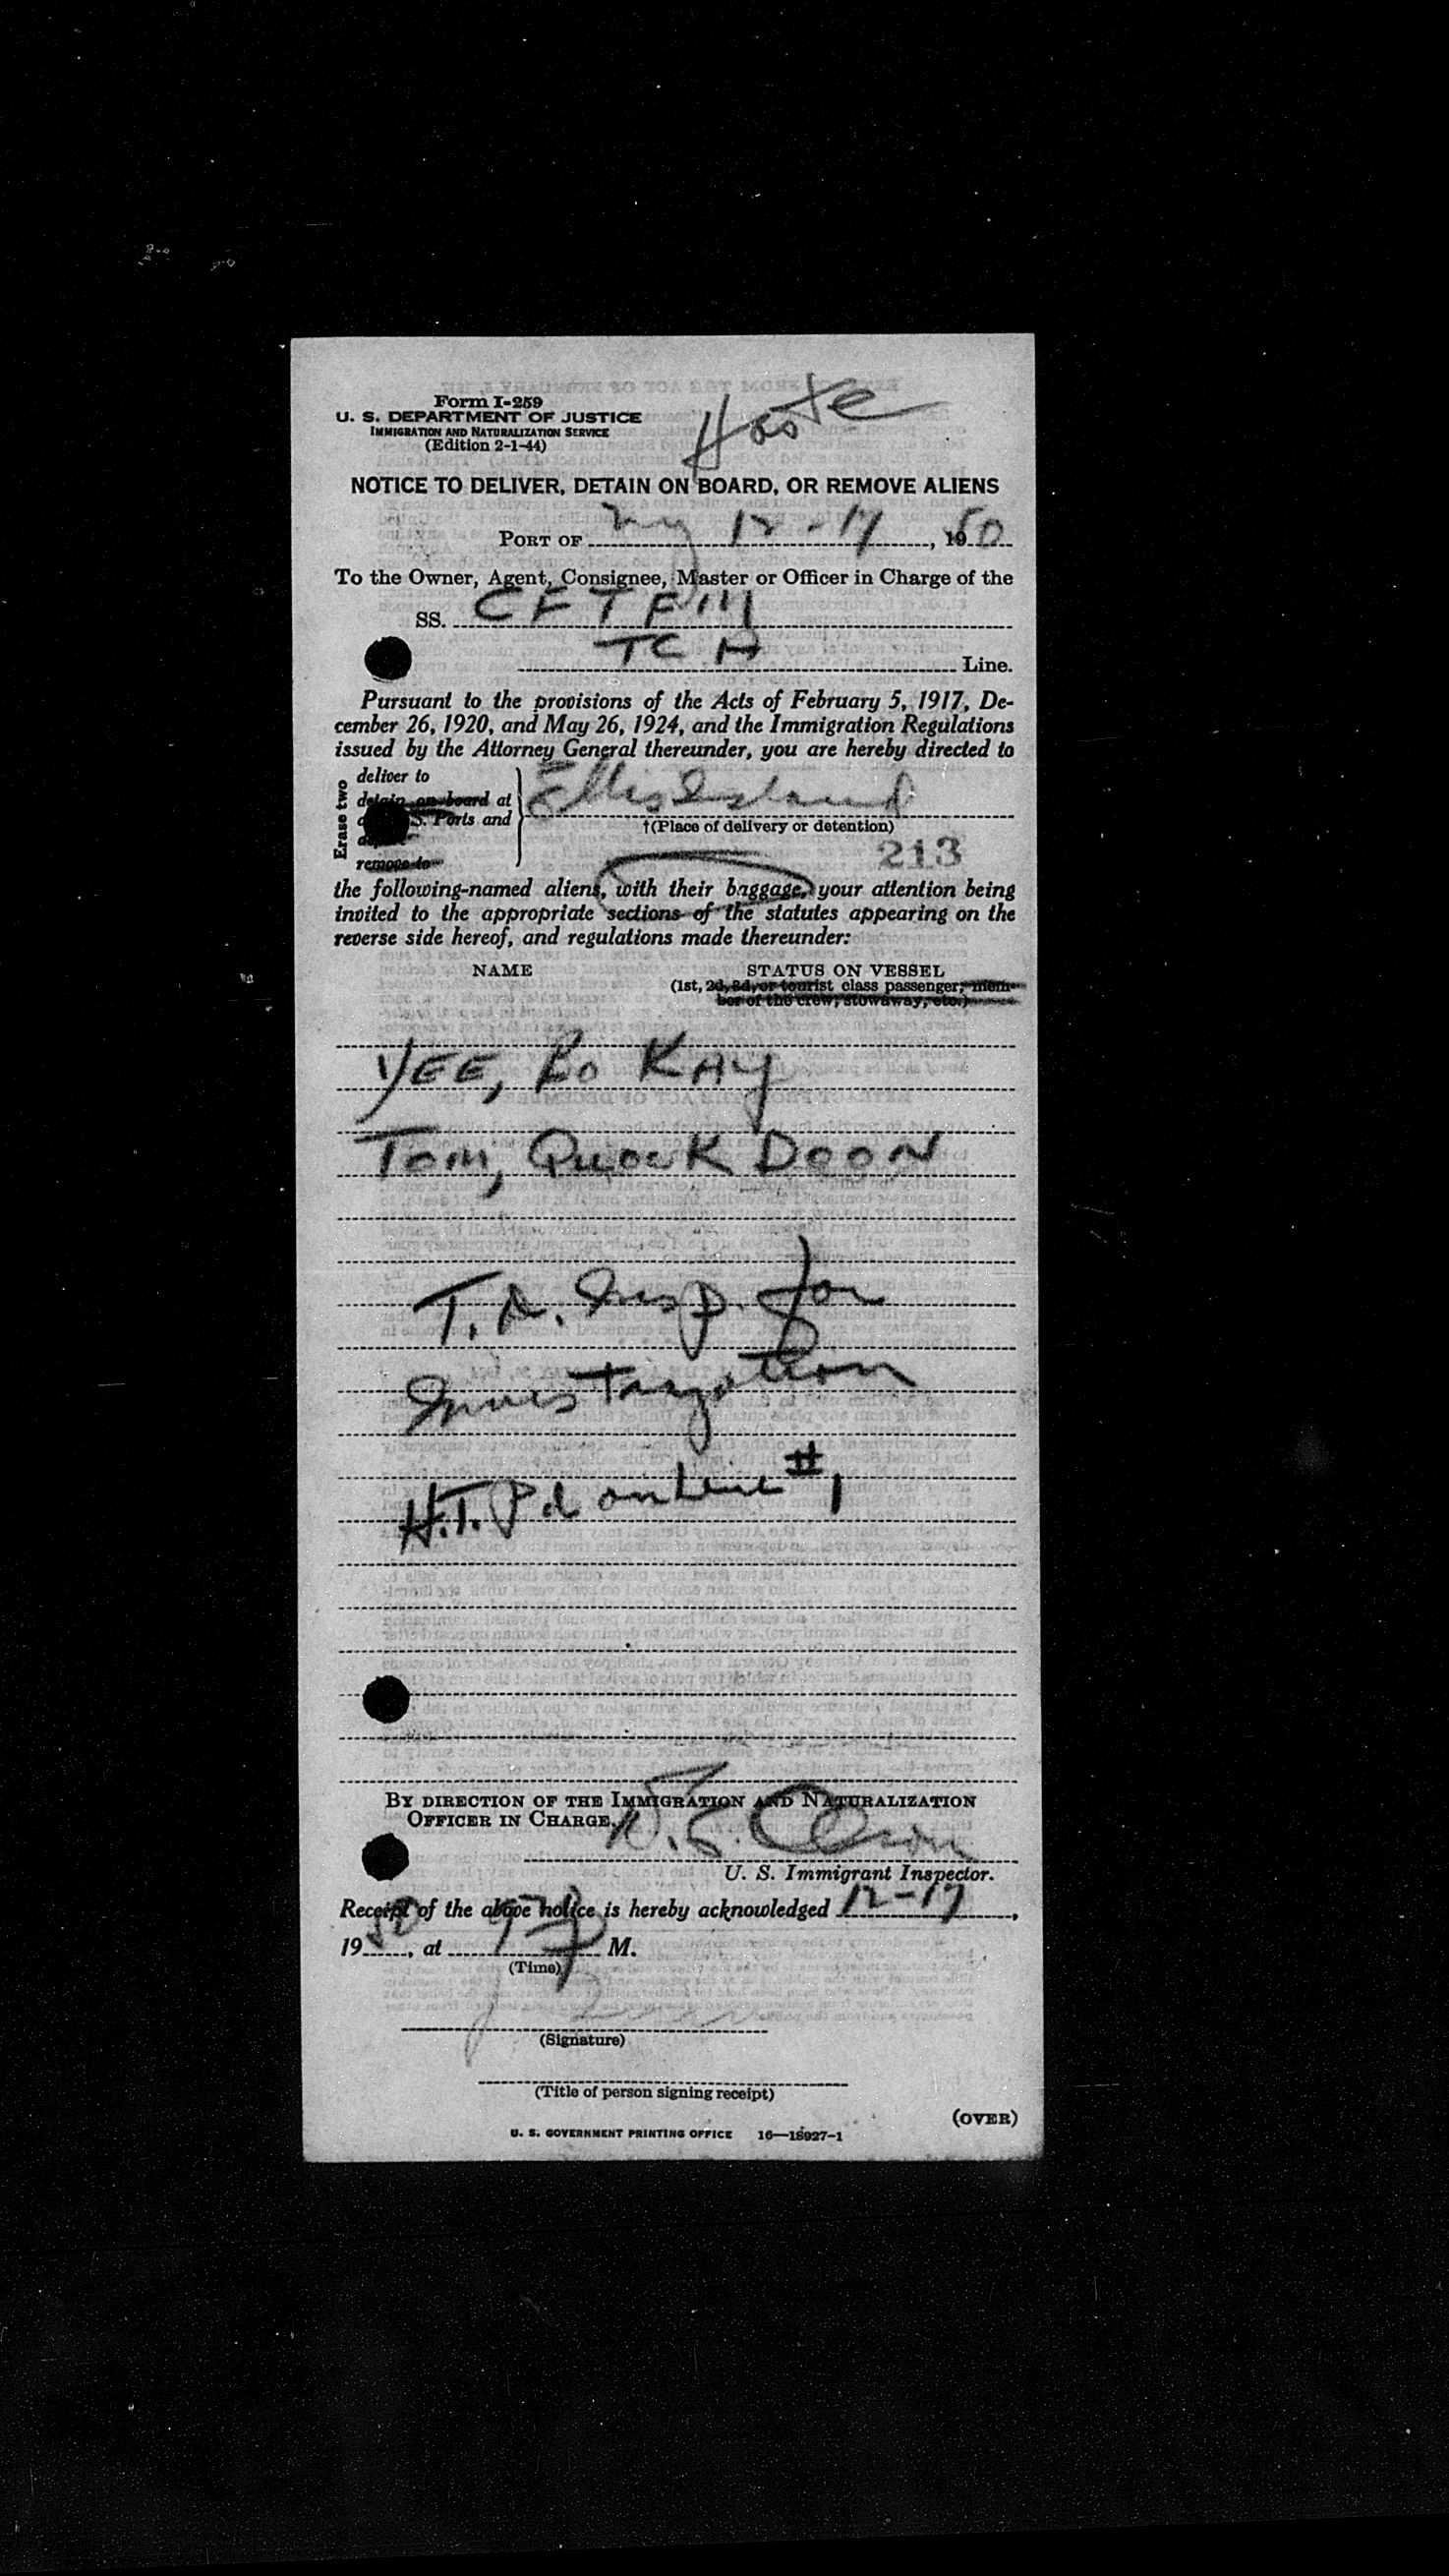 Form I-259
U. S. DEPARTMENT OF JUSTICE
IMMIGRATION AND NATURALIZATION SERVICE
(Edition 2-1-44)
NOTICE TO DELIVER, DETAIN ON BOARD, OR REMOVE ALIENS
PORT OF NY 12-17, 1950
To the Owner, Agent, Consignee, Master or Officer in Charge of the
SS. CFTFM
TCA Line.
Pursuant to the provisions of the Acts of February 5, 1917, De-
cember 26, 1920, and May 26, 1924, and the Immigration Regulations
issued by the Attorney General thereunder, you are hereby directed to
Erase two
deliver to
detain on board at
S. Ports and
remove to
Ellis Island
†(Place of delivery or detention)
213
the following-named aliens, with their baggage, your attention being
invited to the appropriate sections of the statutes appearing on the
reverse side hereof, and regulations made thereunder:
NAME STATUS ON VESSEL
(1st, 2d, 3d, or tourist class passenger, mem-
ber of the crew, stowaway, etc.)
YEE, BO KAY
TOM, QUOCK DOON
T. D. Insp. for
Investigation
H.T. Pd on Line #1
BY DIRECTION OF THE IMMIGRATION AND NATURALIZATION
OFFICER IN CHARGE.
U. S. Immigrant Inspector.
Receipt of the above notice is hereby acknowledged 12-17,
1950, at M.
(Time)
(Signature)
(Title of person signing receipt)
(OVER)
U. S. GOVERNMENT PRINTING OFFICE 16—18927-1